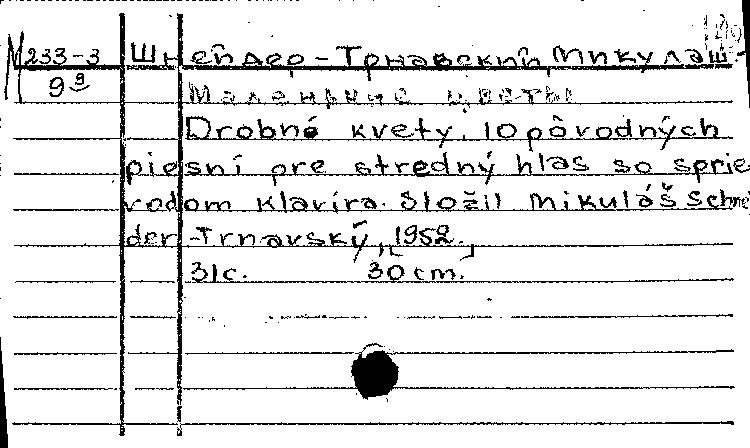 М 233-3 Шнейдер-Трнавский, Микулаш
9⁹ Маленькие цветы
Drobné kvety. 10 pôvodných
piesní pre stredný hlas so sprie
vodom klavíra. Složil Mikuláš Schnei
der-Trnavský, [1952.]
31с. 30cm.